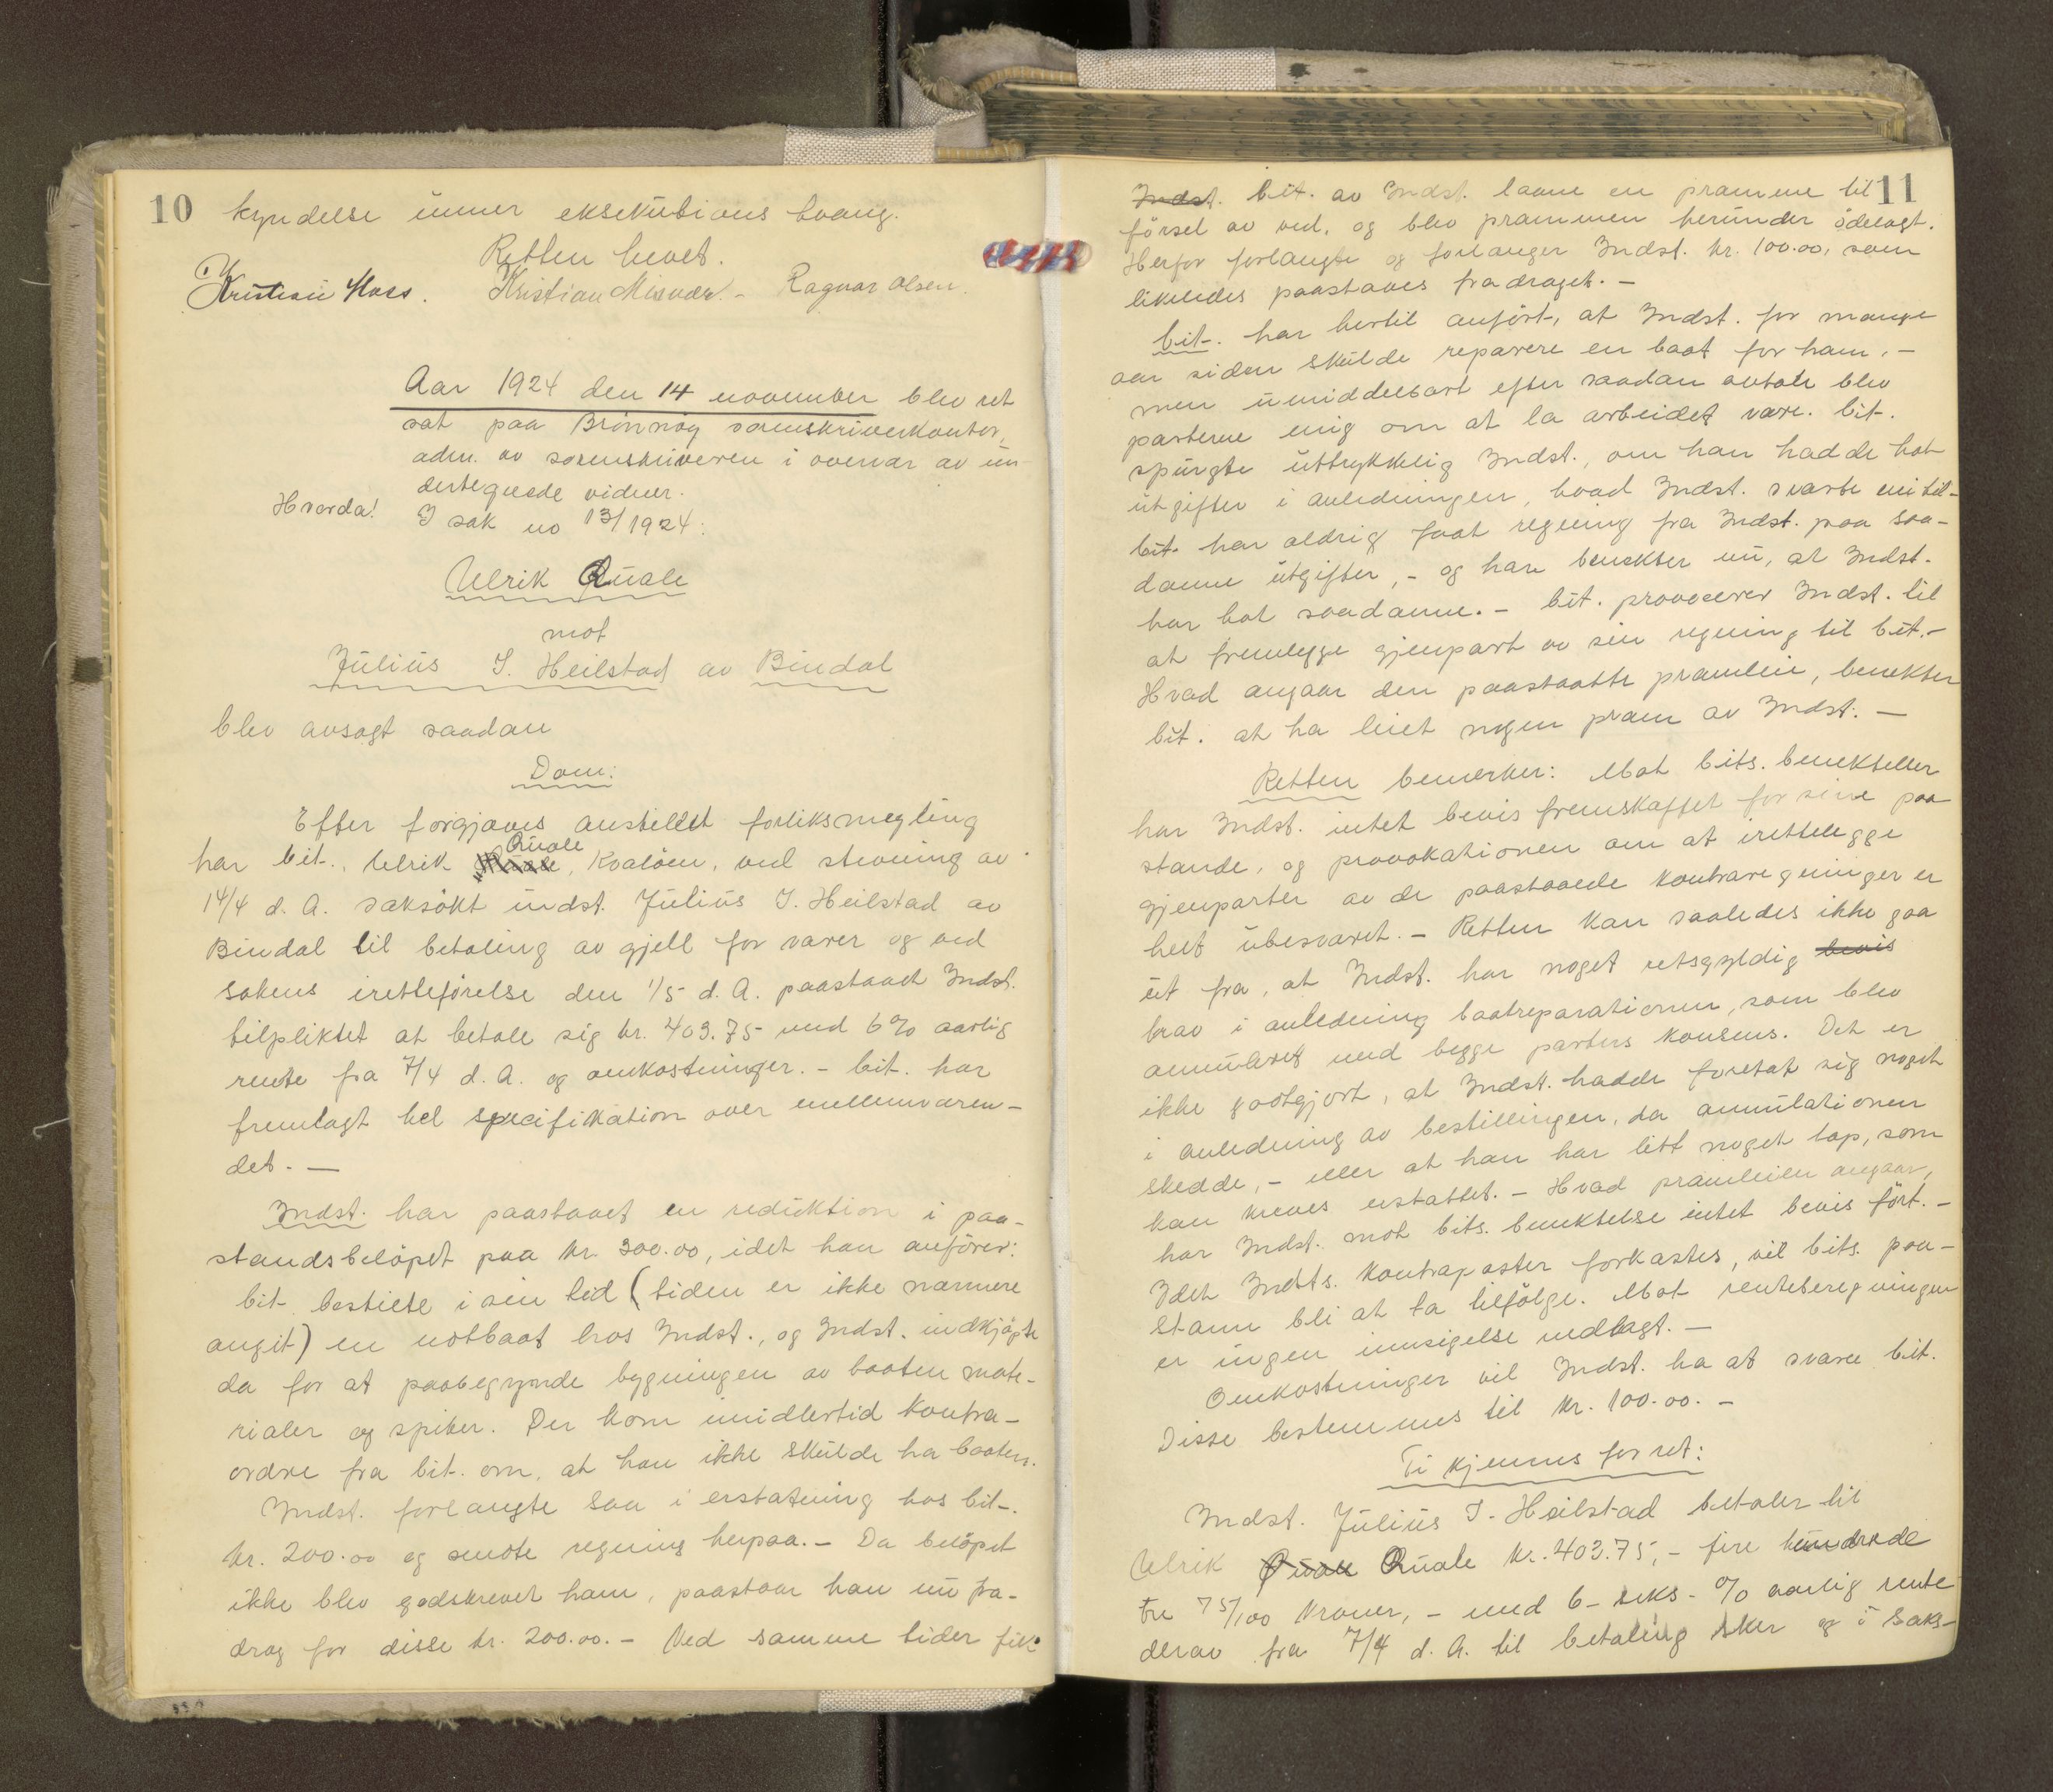 10
kyndelse under eksekutions tvang.
Retten hevet.
Kristian Moes. Kristian Misvær. - Ragnar Olsen.
Aar 1924 den 14 november blev ret
sat paa Brönnöy sorenskriverkontor,
adm. av sorenskriveren i overvær av un-
dertegnede vidner.
Hvorda! I sak no 13/1924:
Ulrik Quale
mot
Julius I. Heilstad av Bindal
blev avsagt saadan
Dom:
Efter forgjæves anstillet forliksmegling
Quale
har cit., Ulrik, Kvalöen, ved stevning av
14/4 d. A. saksökt indst. Julius I. Heilstad av
Bindal til betaling av gjell for varer og ved
sakens iretteförelse den 1/5 d. A. paastaaet Indst.
tilpliktet at betale sig kr. 403.75 med 6% aarlig
rente fra 7/4 d. A. og omkostninger. - Cit. har
fremlagt hel specifikation over mellemværen-
det. -
Indst. har paastaaet en reduktion i paa-
standsbelöpet paa kr. 300.00, idet han anförer:
Cit. bestilte i sin tid (tiden er ikke nærmere
angit) en notbaat hos Indst., og Indst. indkjöpte
da for at paabegynde bygningen av baaten mate-
rialer og spiker. Der kom imidlertid kontra-
ordre fra Cit. om, at han ikke skulde ha baaten.
Indst. forlangte saa i erstatning hos Cit.
kr. 200.00 og sendte regning herpaa. - Da belöpet
ikke blev godskrevet ham, paastaar han nu fra-
drag for disse kr. 200.00. - Ved samme tider fik
11
Indst. Cit. av Indst. laane en pramme til
försel av ved, og blev prammen herunder ödelagt.
Herfor forlangte og forlanger Indst. kr. 100.00, som
likeledes paastaaes fradraget. -
Cit. har hertil anfört, at Indst. for mange
aar siden skulde reparere en baat for ham, -
men umiddelbart efter saadan avtale blev
parterne enig om at la arbeidet være. Cit.
spurgte uttrykkelig Indst., om han hadde hat
utgifter i anledningen, hvad Indst. svarte nei til -
Cit. har aldrig faat regning fra Indst. paa saa-
danne utgifter, - og han benekter nu, at Indst.
har hat saadanne. - Cit. provocerer Indst. til
at fremlegge gjenpart av sin regning til Cit. -
Hvad angaar den paastaatte pramleie, benekter
Cit. at ha leiet nogen pram av Indst. -
Retten bemerker: Mot Cits. benektelser
har Indst. intet bevis fremskaffet for sine paa
stande, og provokationen om at irettelegge
gjenparter av de paastaaede kontraregninger er
helt ubesvaret. - Retten kan saaledes ikke gaa
ut fra, at Indst. har noget retsgyldig bevis
krav i anledning baatreparationen, som blev
annulleret med begge parters konsens. Det er
ikke godtgjort, at Indst. hadde foretat sig noget
i anledning av bestillingen, da annulationen
skedde, - eller at han har litt noget tap, som
kan kræves erstattet. - Hvad pramleien angaar,
har Indst. mot Cits. benektelse intet bevis fört. -
Idet Indts. kontraposter forkastes, vil Cits. paa-
stann bli at ta tilfölge. Mot renteberegningen
er ingen innsigelse nedlagt. -
Omkostninger vil Indst. ha at svare Cit.
Disse bestemmes til kr. 100.00. -
Ti kjennes for ret:
Indst. Julius I. Heilstad betaler til
Ulrik Quale Quale kr. 403.75, - fire hundrede
tre 75/100 kroner, - med 6 - seks - % aarlig rente
derav fra 7/4 d. A. til betaling sker og i saks-